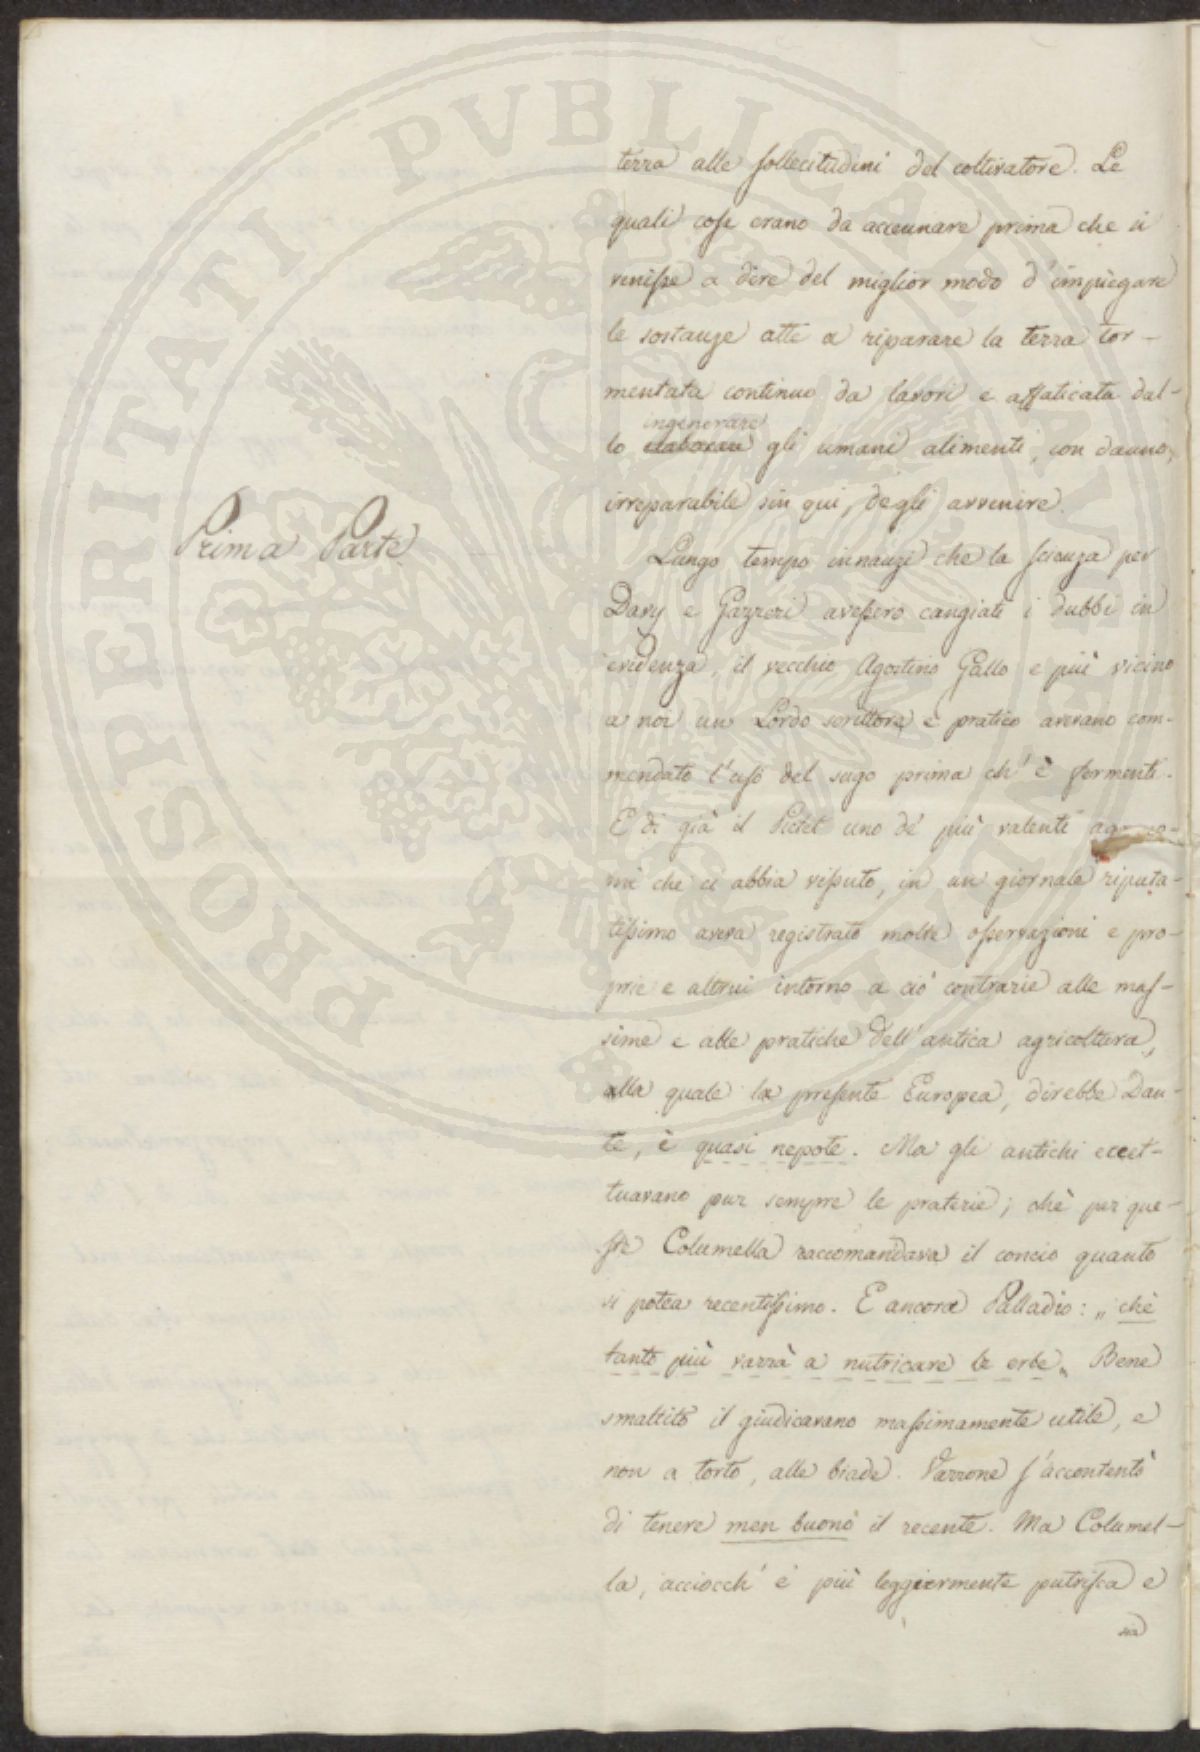 terra alle sollecitudini del coltivatore. Le
quali cose erano da accennare prima che si
venisse a dire del miglior modo d'impiegare
le sostanze atte a riparare la terra tor-
mentata continuo da lavori e affaticata dal-
ingenerare
lo elaborare gli umani alimenti, con danno,
irreparabile sin qui, degli avvenire.
Prima Parte
Lungo tempo innanzi che la scienza per
Davy e Gazzeri avessero cangiati i dubbi in
evidenza, il vecchio Agostino Gallo e più vicino
a noi un Lordo scrittore e pratico avevano com-
mendato l'uso del sugo prima ch'è fermenti.
E di già il Pictet uno de' più valenti agrono-
mi che ci abbia vissuto, in un giornale riputa-
tissimo aveva registrato molte osservazioni e pro-
prie e altrui intorno a ciò contrarie alle mas-
sime e alle pratiche dell'antica agricoltura,
alla quale la presente Europea, direbbe Dan-
te, è quasi nepote. Ma gli antichi eccet-
tuavano pur sempre le praterie; chè per que-
ste Columella raccomandava il concio quanto
si potea recentissimo. E ancora Palladio: „ chè
tanto più varrà a nutricare le erbe„ Bene
smaltito il giudicavano massimamente utile, e
non a torto, alle biade. Varrone s'accontentò
di tenere men buono il recente. Ma Columel-
la, acciocch' e' più leggiermente putrisca e
sia
PROSPERITATI PVBLICAE